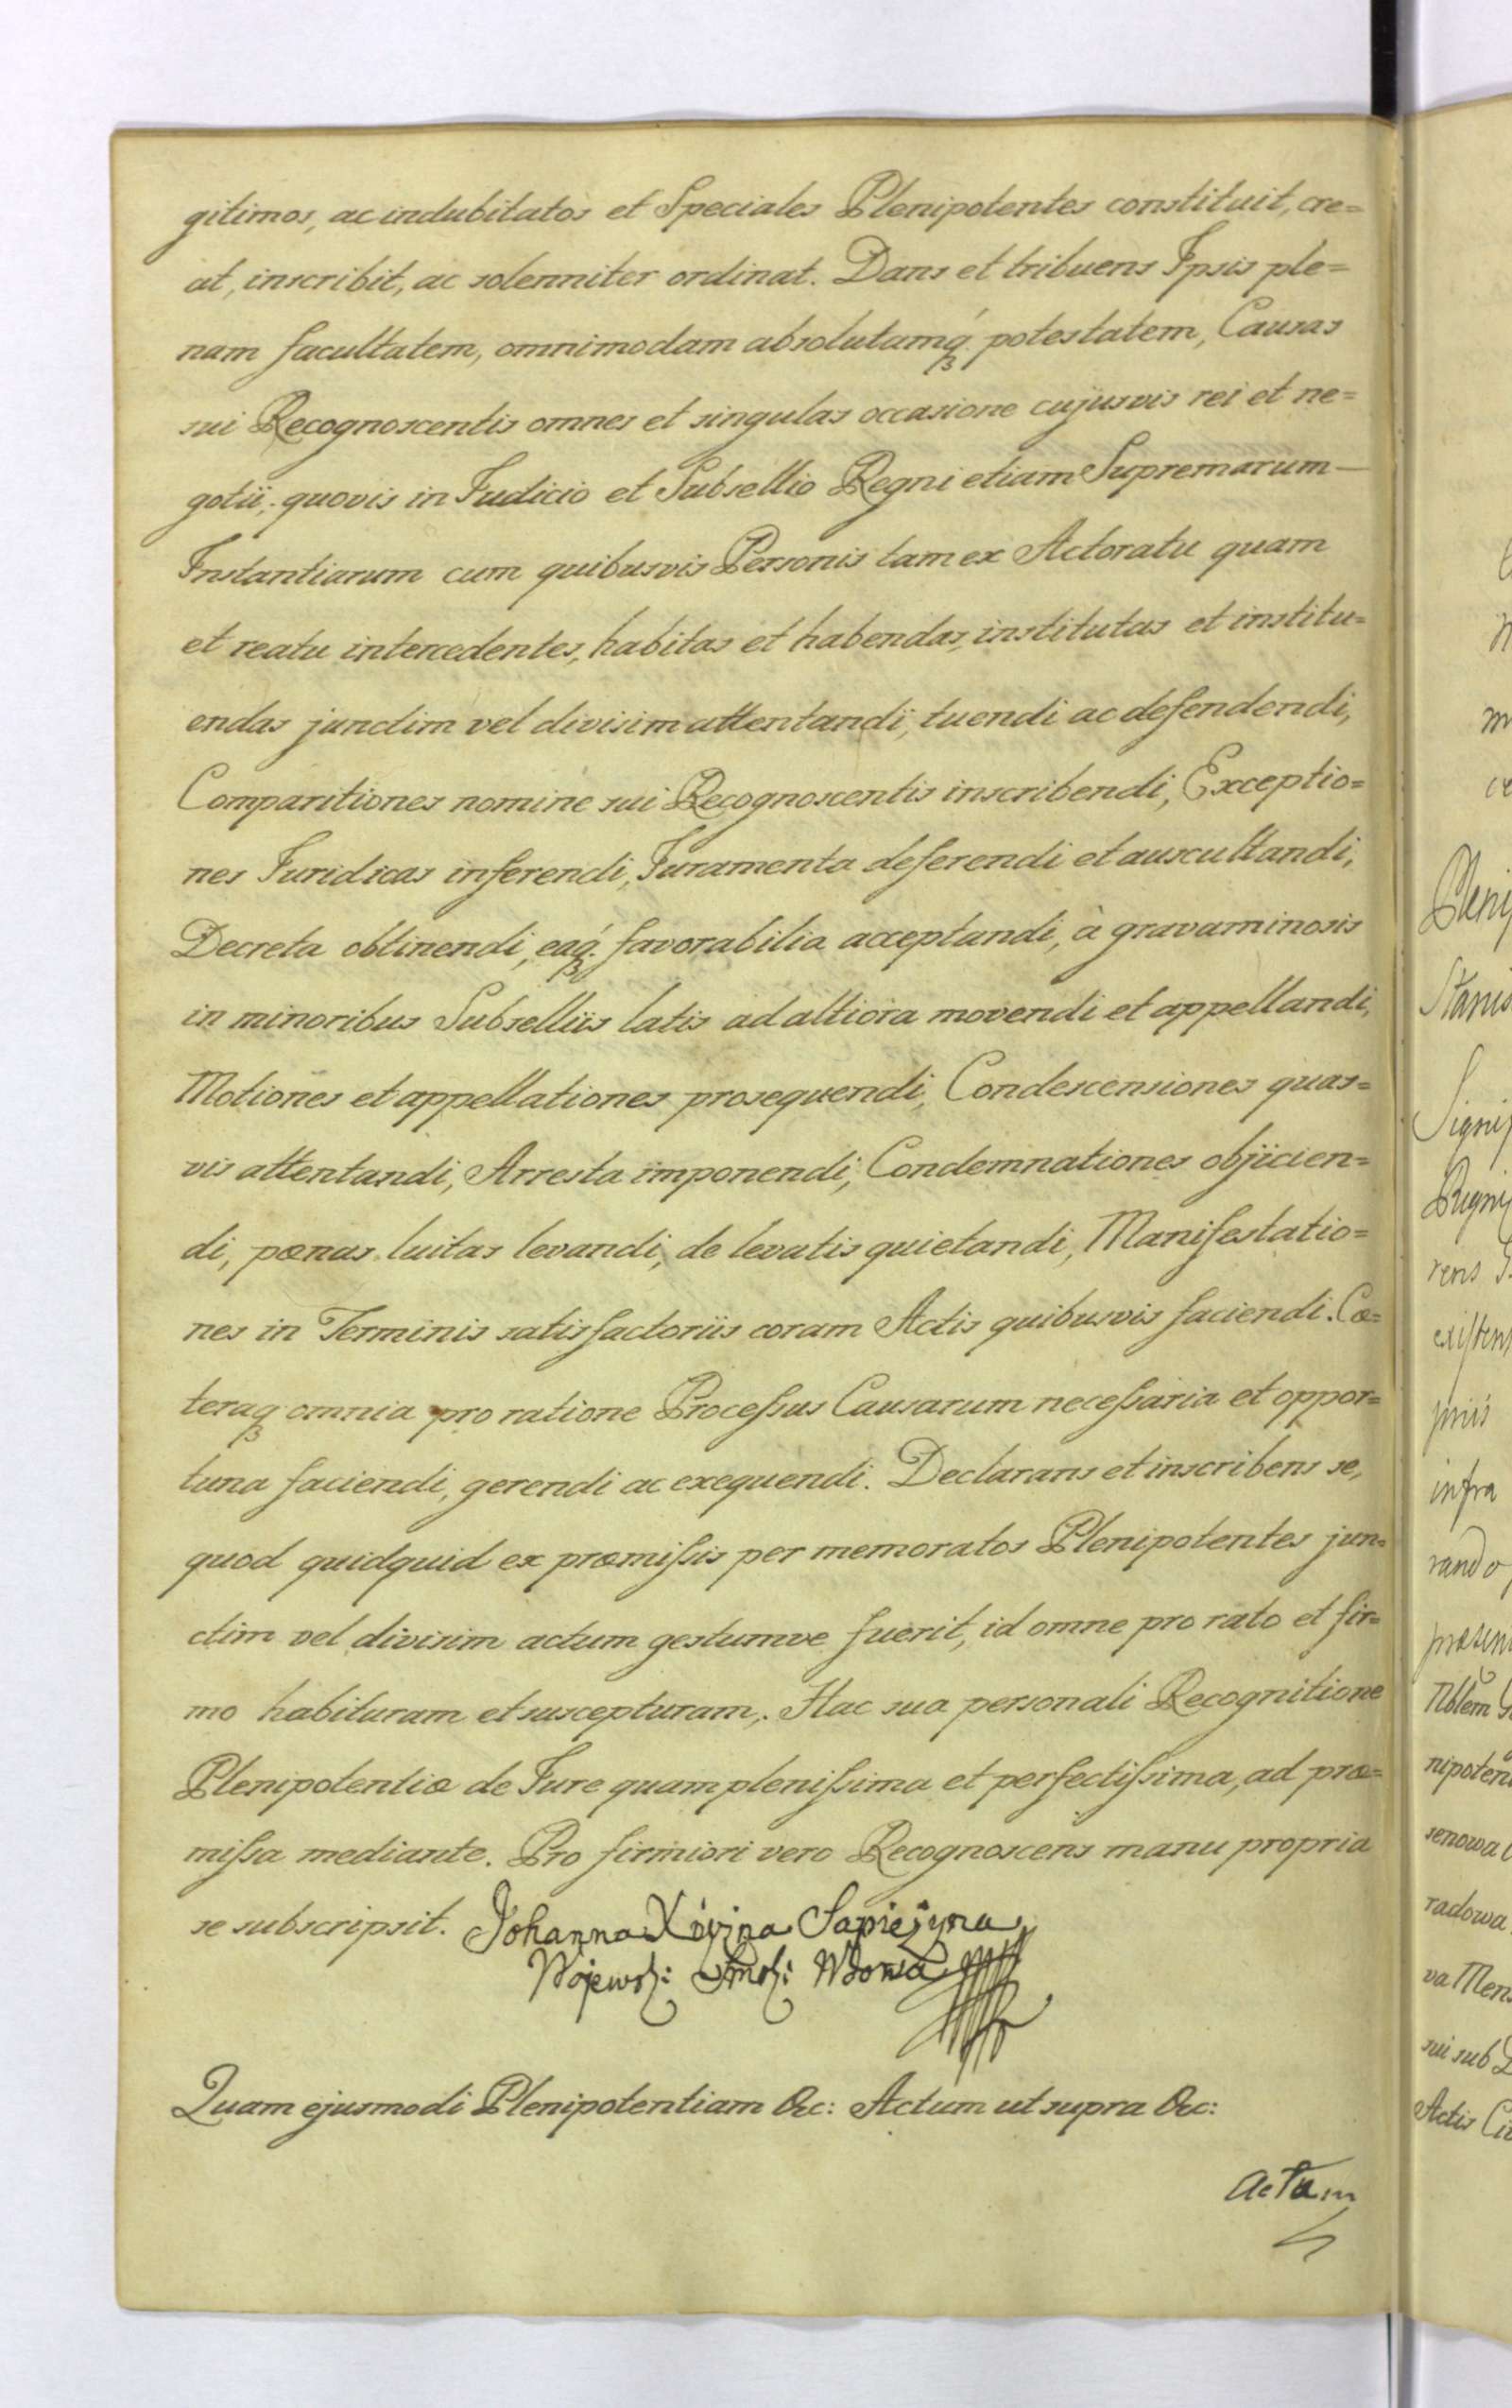 gitimos, ac indubitatos et Speciales Plenipotentes constituit, cre=
at, inscribit, ac solenniter ordinat. Dans et tribuens Ipsis ple=
nam facultatem, omnimodam absolutamq́ꝫ potestatem, Causas
sui Recognoscentis omnes et singulas occasione cujusvis rei et ne=
gotii, quovis in Judicio et Subsellio Regni etiam Supremarum—
Instantiarum cum quibusvis Personis tam ex Actoratu quam
et reatu intercedentes, habitas et habendas, institutas et institu=
endas junctim vel divisim attentandi, tuendi ac defendendi,
Comparitiones nomine sui Recognoscentis inscribendi, Exceptio=
nes Juridicas inferendi, Juramenta deferendi et auscultandi,
Decreta obtinendi, eaq́ꝫ favorabilia acceptandi, à gravaminosis
in minoribus Subselliis latis ad altiora movendi et appellandi,
Motiones et appellationes prosequendi, Condescensiones quas=
vis attentandi, Arresta imponendi, Condemnationes objicien=
di, pœnas luitas levandi, de levatis quietandi, Manifestatio=
nes in Terminis satisfactoriis coram Actis quibusvis faciendi. Cæ=
teraqꝫ omnia pro ratione Processus Causarum necessaria et oppor=
tuna faciendi, gerendi ac exequendi. Declarans et inscribens se,
quod quidquid ex præmissis per memoratos Plenipotentes jun=
ctim vel divisim actum gestumve fuerit, id omne pro rato et fir=
mo habituram et suscepturam, Hac sua personali Recognitione
Plenipotentiæ de Jure quam plenissima et perfectissima, ad præ=
missa mediante. Pro firmiori vero Recognoscens manu propria
se subscripsit. Johanna Sapiejyna
Wojewdz: Smol: Wdowa
Quam ejusmodi Plenipotentiam &c: Actum ut supra &c:
Actum
Stanis
existens
infra
rando
Nblem
nipoten
senowa
radowa
va Men
sui sub
Actis